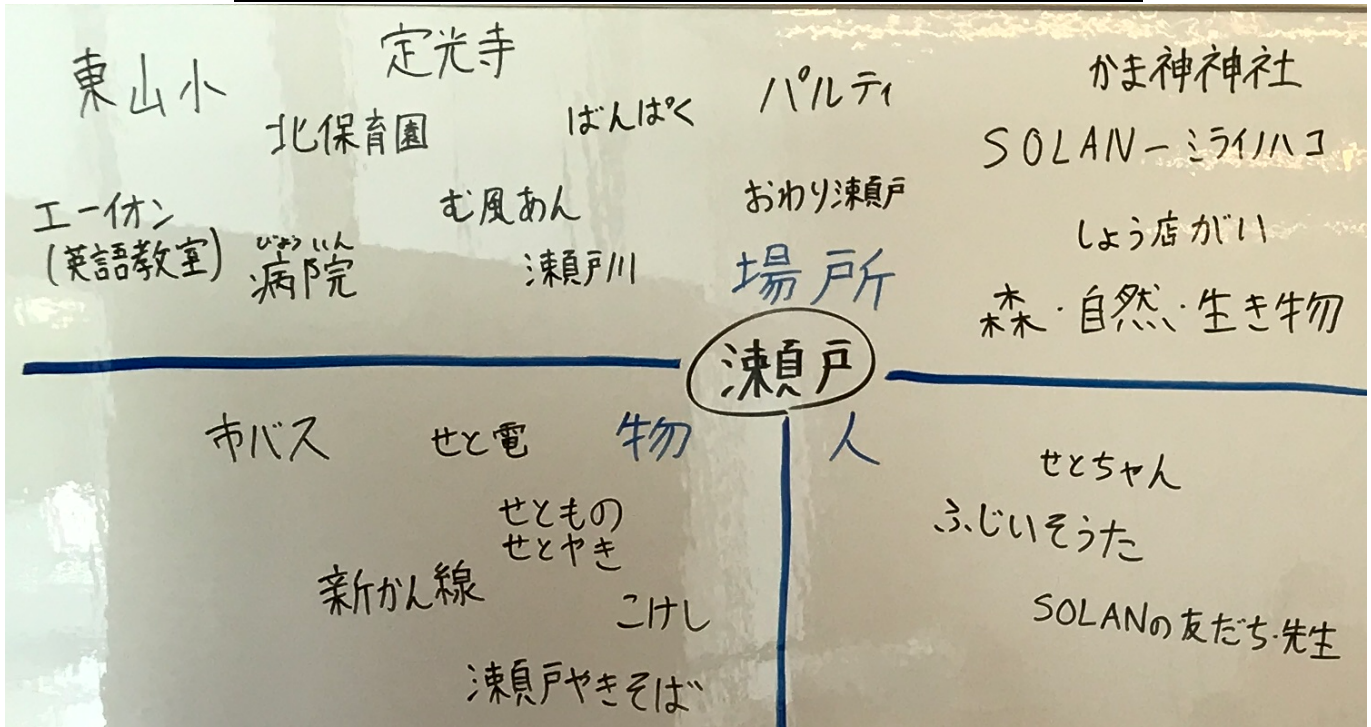 東山小
定光寺
北保育園
ばんぱく
パルティ
かま神神社
SOLAN－ミライノハコ
エーイオン
(英語教室)
びょういん
病院
む風あん
瀬戸川
おわり瀬戸
しょう店がい
場所
森・自然・生き物
瀬戸
市バス
せと電
物
人
せともの
せとやき
新かん線
こけし
瀬戸やきそば
せとちゃん
ふじいそうた
SOLANの友だち・先生